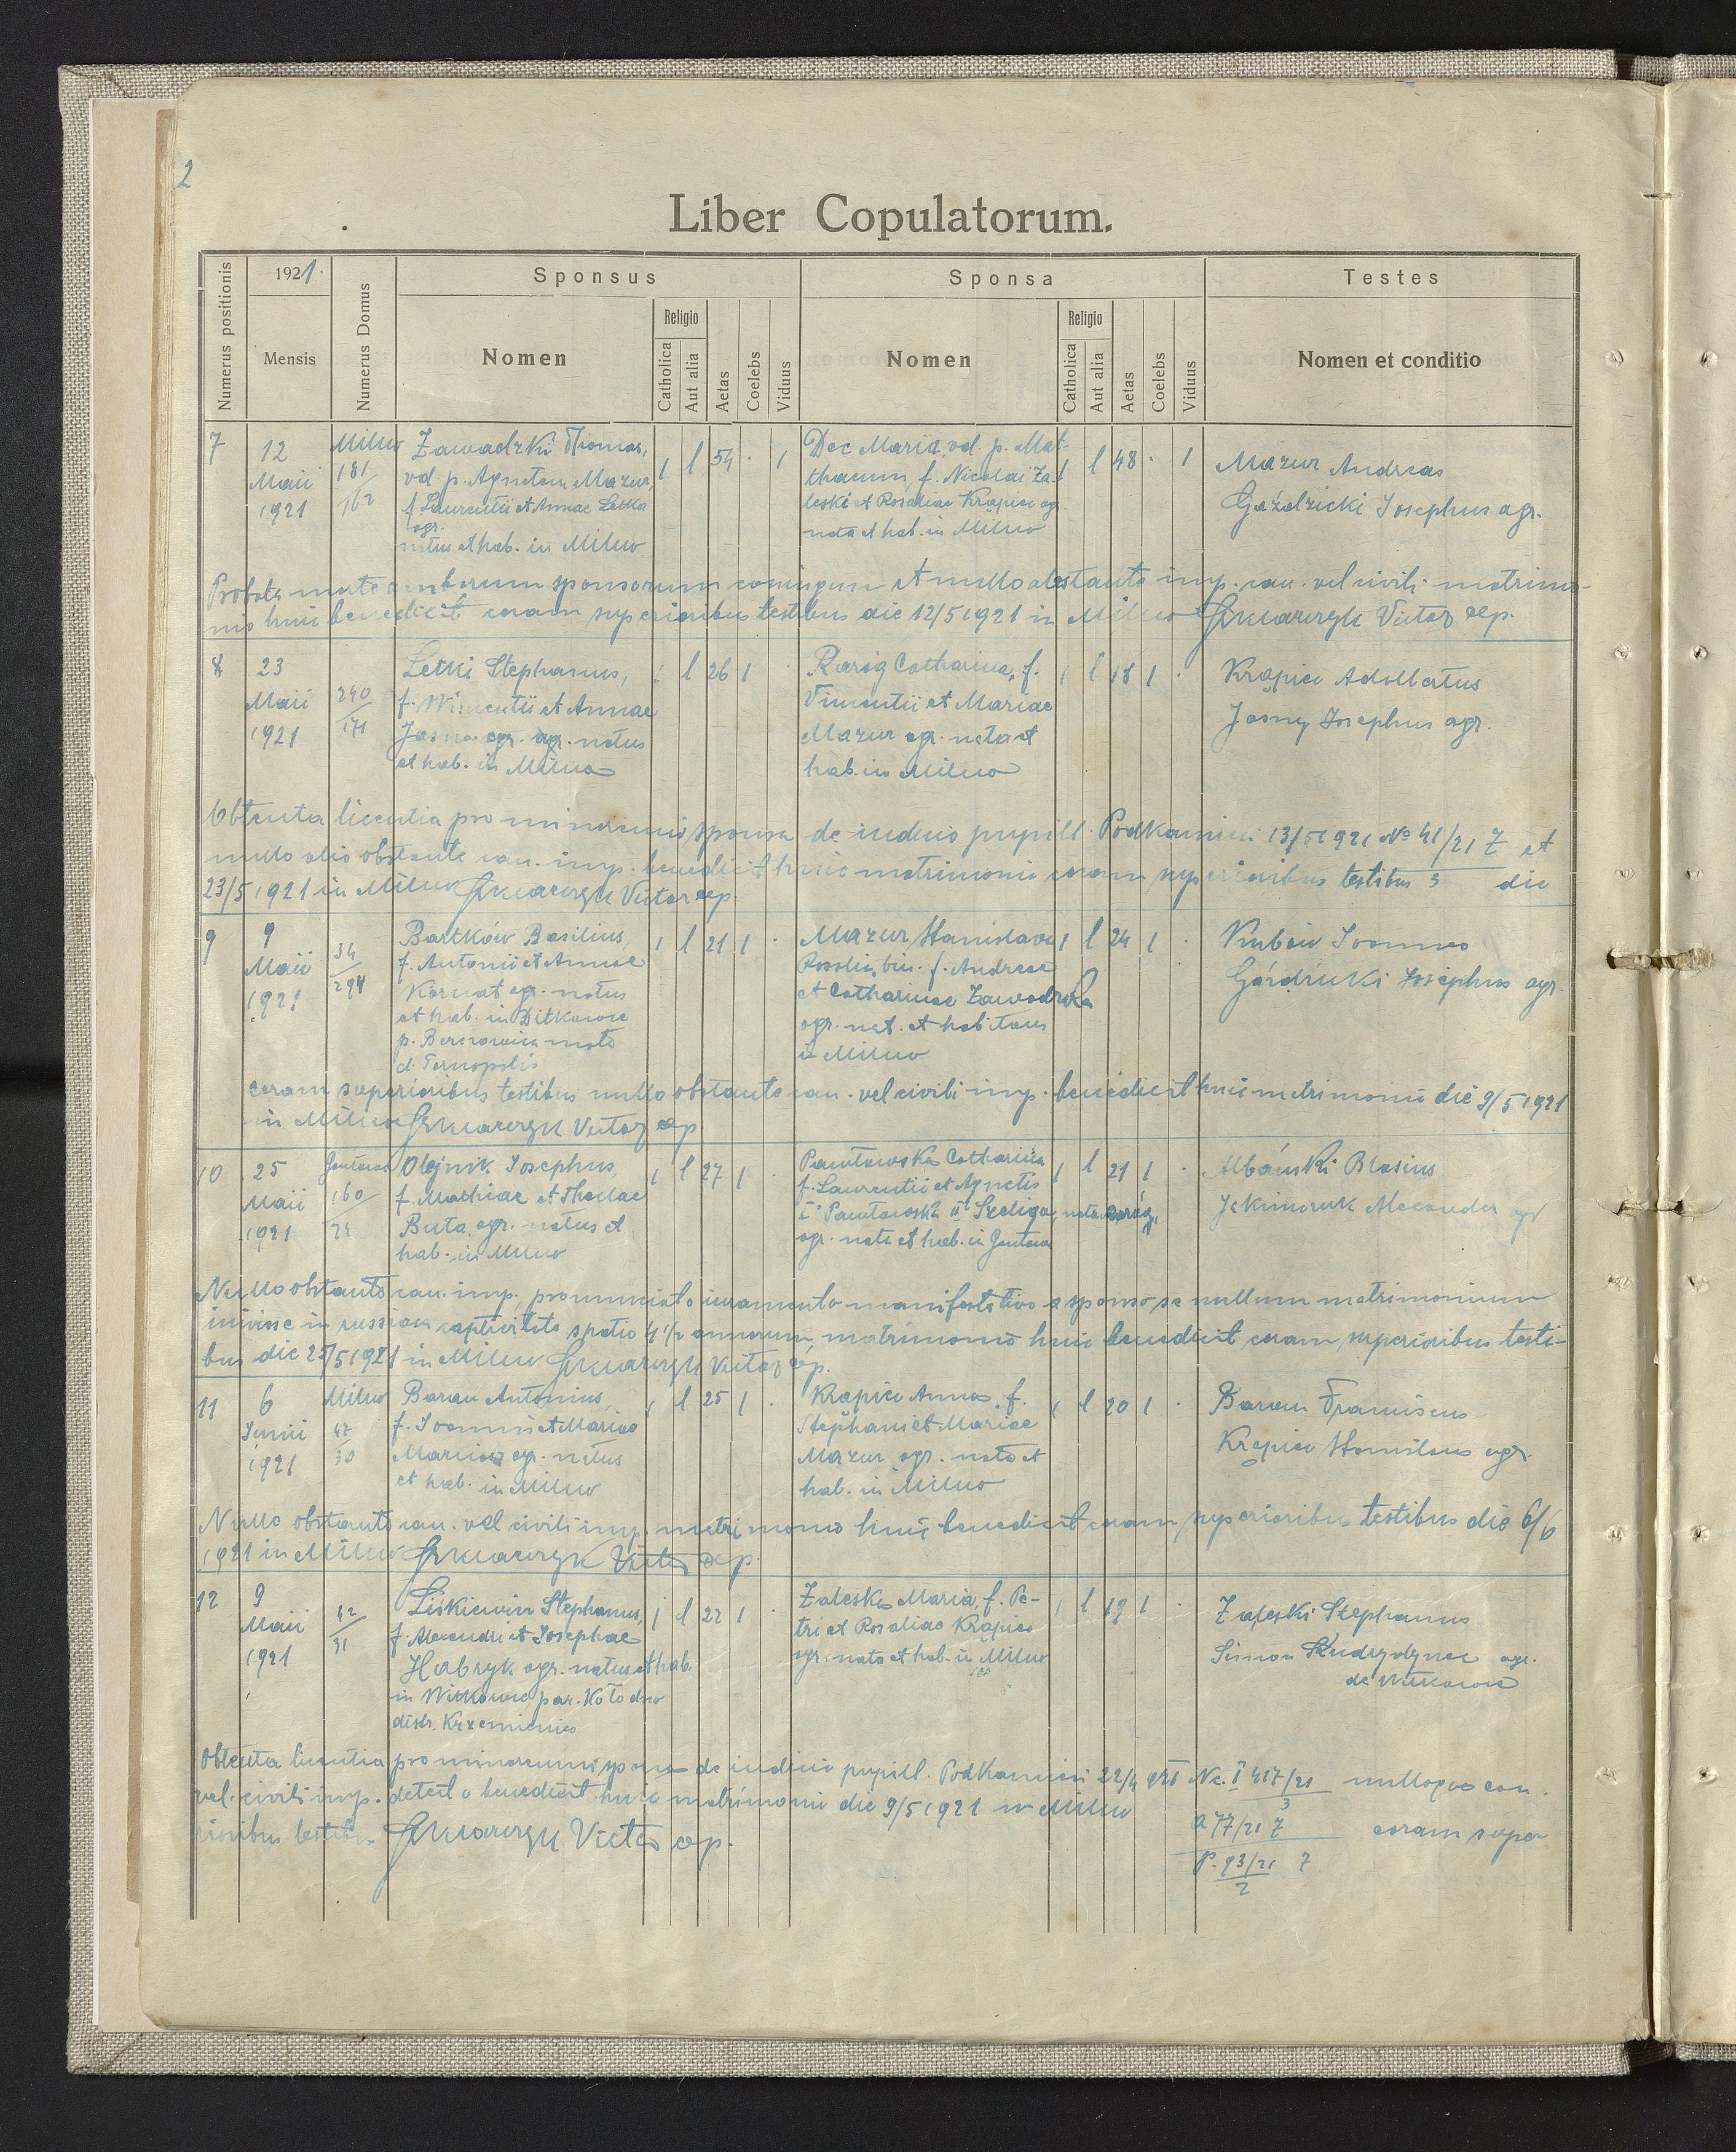 2
Liber Copulatorum.
Numerus positionis
1921
Mensis
Numerus Domus
Sponsus
Nomen
Religio
Catholica
Aut alia
Aetas
Coelebs
Viduus
Sponsa
Nomen
Religio
Catholica
Aut alia
Aetas
Coelebs
Viduus
Testes
Nomen et conditio
7 12 Maii 1921
Milno 181/162
Zawadzki Thomas,
vd. p. Agnetem Mazur,
f. Laurentii et Annae Letka
agr.
natus et hab. in Milno
1 l 54 · 1
Dec Maria vd. p. Mat-
thaeum, f. Nicolai Za-
leski et Rosaliae Krąpiec agr.
nata et hab. in Milno
1 l 48 · 1
Mazur Andreas
Gaździcki Josephus agr.
Probata morte amborum sponsorum coniugum et nullo obstante imp. can. vel civili matrimo-
nio huic benedicit coram superioribus testibus die 12/5 1921 in Milno Szkwarczyk Victor exp.
8 23 Maii 1921
240/171
Letki Stephanus,
f. Wincentii et Annae
agr. natus
et hab. in Milno
1 l 26 1 ·
Raróg Catharina, f.
Vincentii et Mariae
Mazur agr. nata et
hab. in Milno
1 l 18 1 ·
Krąpiec Adalbertus
Jasny Josephus agr.
Obtenta licentia pro minorenni sponsa de iudicio pupill. Podkamień 13/5 1921 No 41/21 7/3 et
nullo alio obstante can. imp. benedicit huic matrimonio coram superioribus testibus die
23/5 1921 in Milno Szkwarczyk Victor exp.
9 9 Maii 1921
34/294
Bartków Basilius,
f. Antonii et Annae
Kornat agr. natus
et hab. in Ditkowce
p. nato
d. Ternopolis
1 l 21 1 ·
Mazur Stanislava
Rosalia, bin. f. Andreae
et Catharinae Zawadzka
agr. nat. et habitans
in Milno
1 l 24 1 ·
Joannes
Gaździcki Josephus agr.
coram superioribus testibus nullo obstante can. vel civili imp. benedicit huic matrimonio die 9/5 1921
in Milno Szkwarczyk Victor exp.
10 25 Maii 1921
Gontowa 160/24
Olejnik Josephus
f. Mathiae et Theclae
Buta agr. natus et
hab. in Milno
1 l 27 1 ·
Pawłowska Catharina
f. Laurentii et Agnetis
I° Pawłowski II° Szeliga, nata
agr. nata et hab. in Gontowa
1 l 21 1 ·
Albański Blasius
Alexander agr
Nullo obstante can. imp., pronunciato iuramento manifestativo a sponso se nullum matrimonium
inivisse in russica captivitate spatio 4 1/2 annorum, matrimonio huic benedicit coram superioribus testi-
bus die 25/5 1921 in Milno Szkwarczyk Victor exp.
11 6 Junii 1921
Milno 47/30
Baran Antonius,
f. Joannis et Mariae
agr. natus
et hab. in Milno
1 l 25 1 ·
Krąpiec Anna, f.
Stephani et Mariae
Mazur agr. nata et
hab. in Milno
1 l 20 1 ·
Baran Franciscus
Krąpiec Stanislaus agr.
Nullo obstante can. vel civili imp. matrimonio huic benedicit coram superioribus testibus die 6/6
1921 in Milno Szkwarczyk Victor exp.
12 9 Maii 1921
42/31
Liśkiewicz Stephanus,
f. Alexandri et Josephae
agr. natus et hab.
in Witkowce par. Kołodno
distr. Krzemieniec
1 l 22 1 ·
Zaleska Maria, f. Pe-
tri et Rosaliae Krąpiec
agr. nata et hab. in Milno
1 l 19 1 ·
Zaleski Stephanus
Simon agr.
de Witkowce
Obtenta licentia pro minorenni sponsa de iudicio pupill. Podkamień 22/4 921 Nc. I 417/21 3 nulloque can.
vel civili imp. detecto benedicit huic matrimonio die 9/5 1921 in Milno
a 77/21 7 coram supe-
rioribus testibus Szkwarczyk Victor exp.
P. 93/21 7
2